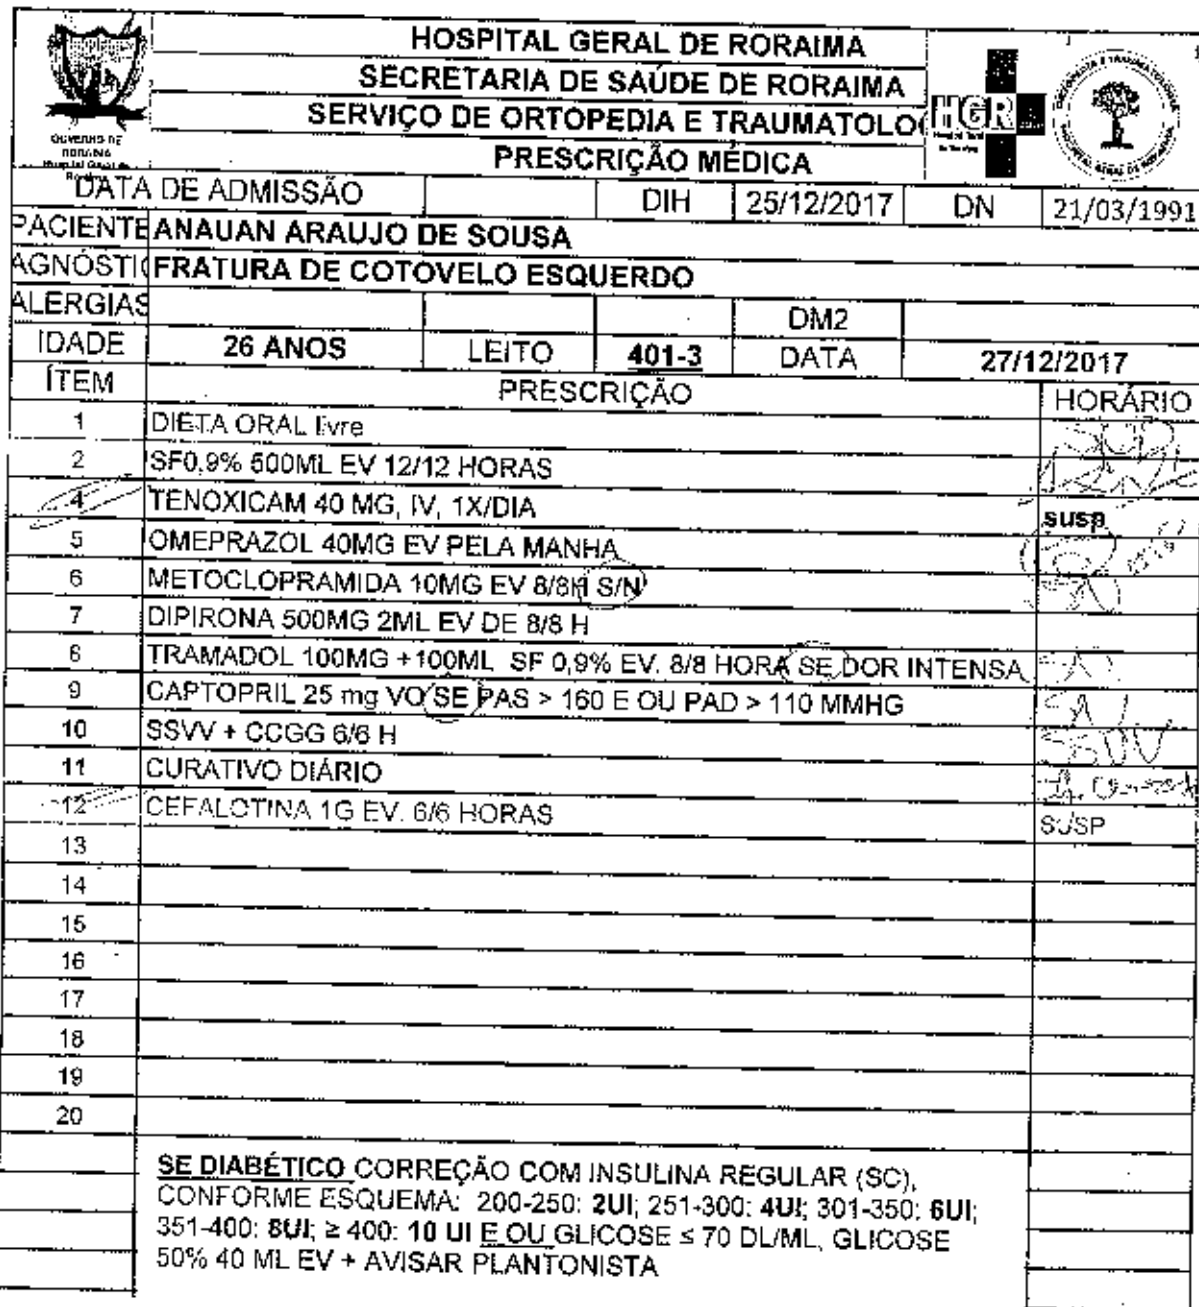 HOSPITAL GERAL DE RORAIMA
SECRETARIA DE SAÚDE DE RORAIMA
SERVIÇO DE ORTOPEDIA E TRAUMATOLO
PRESCRIÇÃO MÉDICA
GOVERNO DE RORAIMA
HGR
DATA DE ADMISSÃO DIH 25/12/2017 DN 21/03/1991
PACIENTE ANAUAN ARAUJO DE SOUSA
AGNÓSTI FRATURA DE COTOVELO ESQUERDO
ALERGIAS DM2
IDADE 26 ANOS LEITO 401-3 DATA 27/12/2017
ÍTEM PRESCRIÇÃO HORÁRIO
1 DIETA ORAL livre
2 SF0,9% 500ML EV 12/12 HORAS
4 TENOXICAM 40 MG, IV, 1X/DIA susp
5 OMEPRAZOL 40MG EV PELA MANHA
6 METOCLOPRAMIDA 10MG EV 8/8H S/N
7 DIPIRONA 500MG 2ML EV DE 8/8 H
8 TRAMADOL 100MG +100ML SF 0,9% EV. 8/8 HORA SE DOR INTENSA
9 CAPTOPRIL 25 mg VO SE PAS > 160 E OU PAD > 110 MMHG
10 SSVV + CCGG 6/6 H
11 CURATIVO DIÁRIO
12 CEFALOTINA 1G EV. 6/6 HORAS SUSP
13
14
15
16
17
18
19
20
SE DIABÉTICO CORREÇÃO COM INSULINA REGULAR (SC),
CONFORME ESQUEMA: 200-250: 2UI; 251-300: 4UI; 301-350: 6UI;
351-400: 8UI; ≥ 400: 10 UI E OU GLICOSE ≤ 70 DL/ML, GLICOSE
50% 40 ML EV + AVISAR PLANTONISTA